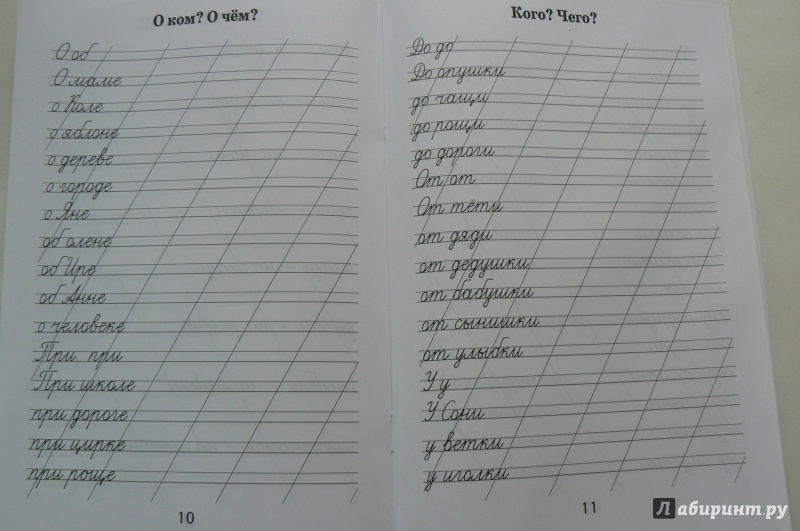 О ком? О чём?
О об
О маме
о Коле
о яблоне
о дереве
о городе
о Яне
об олене
об Ире
об Анне
о человеке
При при
При школе
при дороге
при цирке
при роще
10
Кого? Чего?
До до
До опушки
до чащи
до рощи
до дороги
От от
От тёти
от дяди
от дедушки
от бабушки
от сынишки
от улыбки
У у
У Сони
у ветки
у иголки
11
Лабиринт.ру